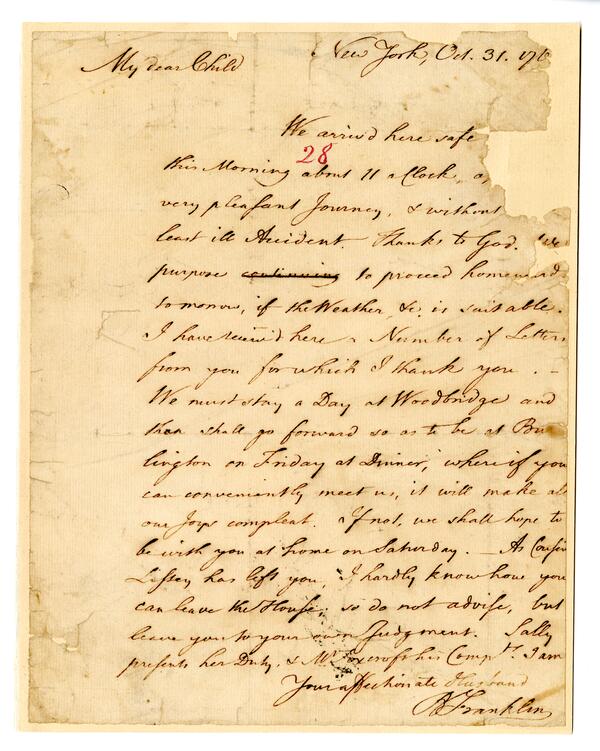 My dear Child New York, Oct. 31. 176
We arriv'd here safe
28
this Morning about 11 aClock, a
very pleasant Journey, & without
least ill Accident. Thanks to God. We
purpose continuing to proceed homewards
tomorrow, if the Weather, &c. is suitable.
I have receiv'd here a Number of Letters
from you for which I thank you. —
We must stay a Day at Woodbridge and
then shall go forward so as to be at Bur
lington on Friday at Dinner, where if you
can conveniently meet us, it will make all
our Joys compleat. If not, we shall hope to
be with you at home on Saturday. — As Cousin
Lissey has left you, I hardly know how you
can leave the House; so do not advise, but
leave you to your own Judgment. Sally
presents her Duty, & Mr Foxcroft his Compts. I am
Your affectionate Husband
B Franklin